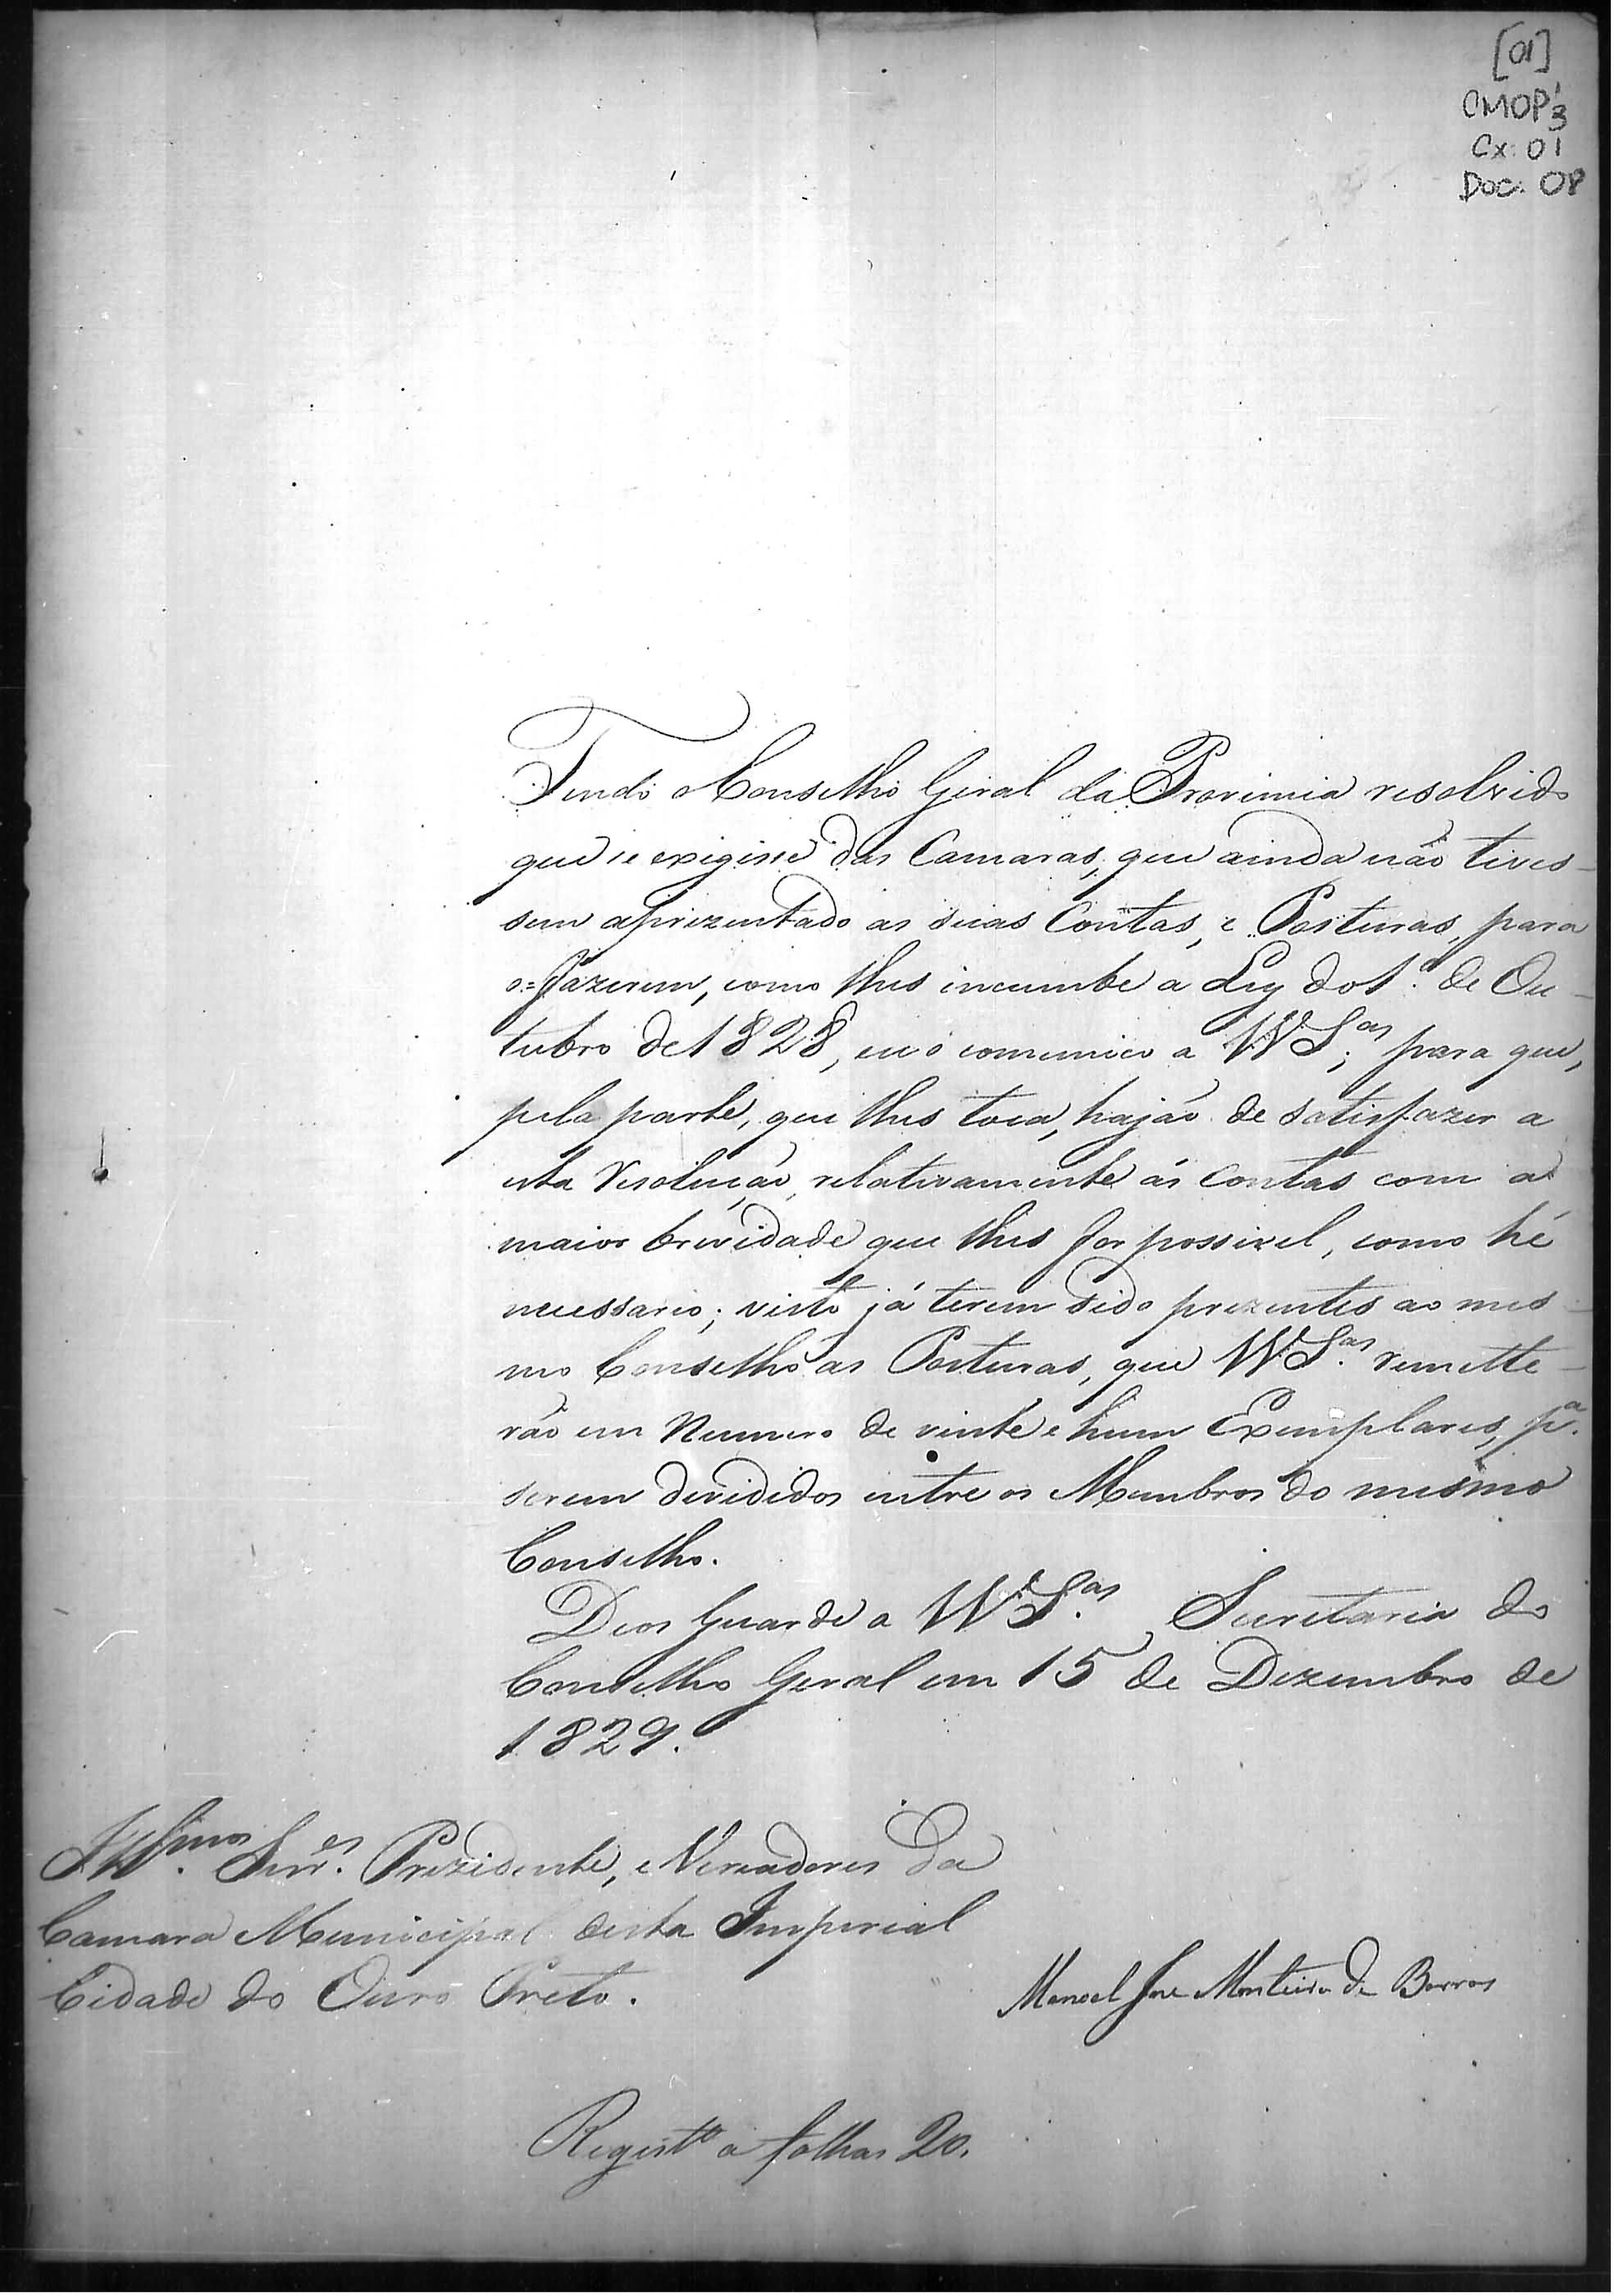 [01]
CMOP 3
Cx: 01
Doc: 08
Tendo o Conselho Geral da Provincia resolvido
que se exigisse das Camaras, que ainda não tives-
sem aprezentado as suas Contas, e Posturas, para
o=fazerem, como lhes incumbe a Ley do 1.º de Ou-
tubro de 1828, eu o comunico a VV.S.as; para que,
pela parte, que lhes toca, hajão de satisfazer a
esta Resolução, relativamente ás contas com a
maior brevidade que lhes for possivel, como hé
necessario; visto já terem sido prezentes ao mes-
mo Conselho as Posturas, que VV.S.as remette-
rão em Numero de vinte e hum Exemplares, p.a
serem devididos entre os Membros do mesmo
Conselho.
Deos Guarde a VV.S.as Secretaria do
Conselho Geral em 15 de Dezembro de
1829.
Ill.mos Snr.es Prezidente, e Vereadores da
Camara Municipal desta Imperial
Cidade do Ouro Preto.
Manoel Jose Monteiro de Barros
Regist.º a folhas 20.